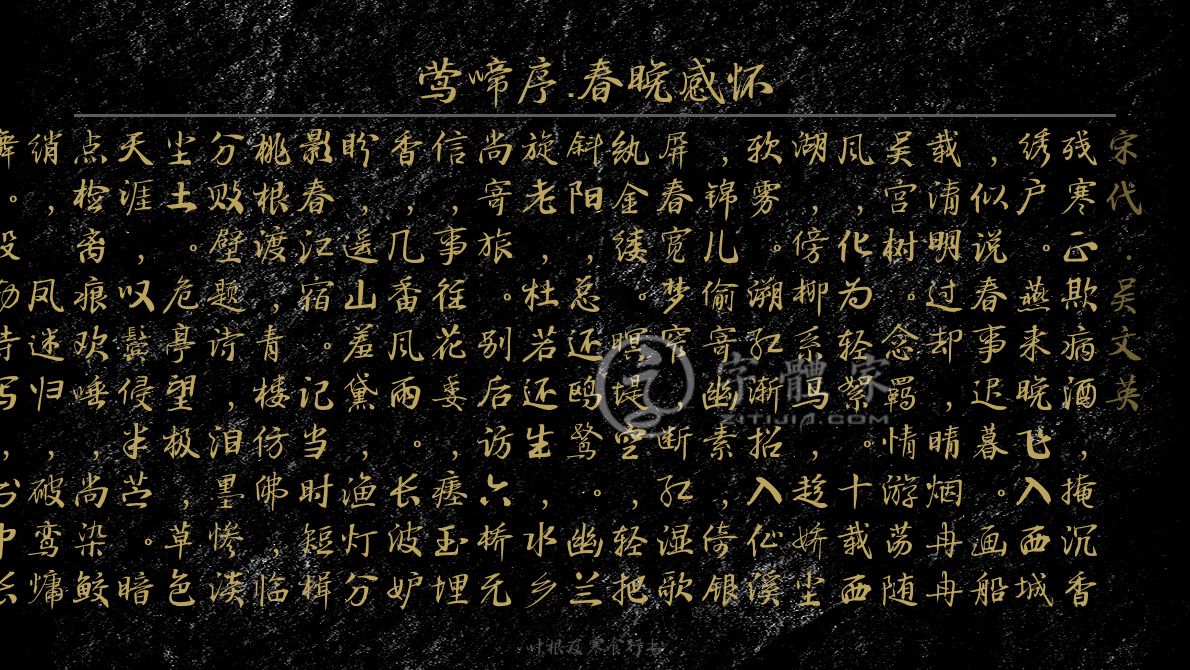 莺啼序.春晚感怀
宋代.吴文英
残寒正欺病酒，掩沉香
绣户。燕来晚飞入西城
，似说春事迟暮。画船
载清明过却，晴烟冉冉
吴宫树。念羁情游荡随
风，化为轻絮。十载西
湖，傍柳系马，趁娇尘
软雾。溯红渐招入仙溪
，锦儿偷寄幽素，倚银
屏春宽梦窄，断红湿歌
纨金缕。暝堤空，轻把
斜阳，总还鸥鹭。幽兰
旋老，杜若还生，水乡
尚寄旅。别后访六桥无
信，事往花委，瘗玉埋
香，几番风雨。长波妒
盼，遥山羞黛，渔灯分
影春江宿，记当时短楫
桃根渡。青楼仿佛，临
分败壁题诗，泪墨惨淡
尘土。危亭望极，草色
天涯，叹鬓侵半苎。暗
点检，离痕欢唾，尚染鲛
绡，凤迷归，破鸾慵
舞。殷待写，书中长